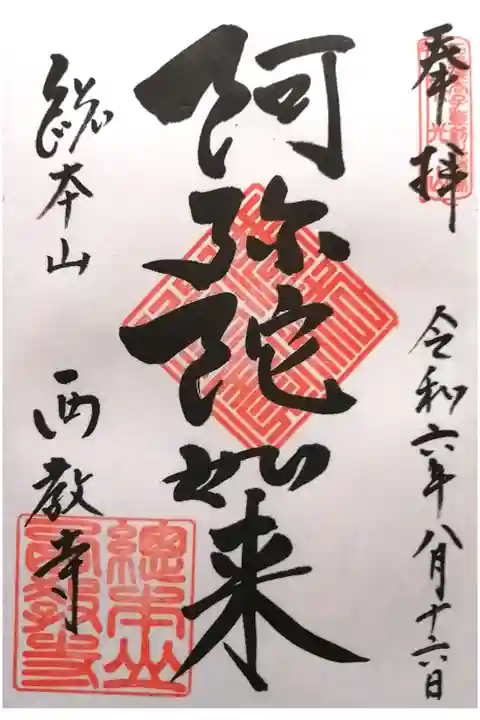 奉拝
令和六年八月十六日
阿弥陀如来
総本山 西教寺
總本山
西教寺